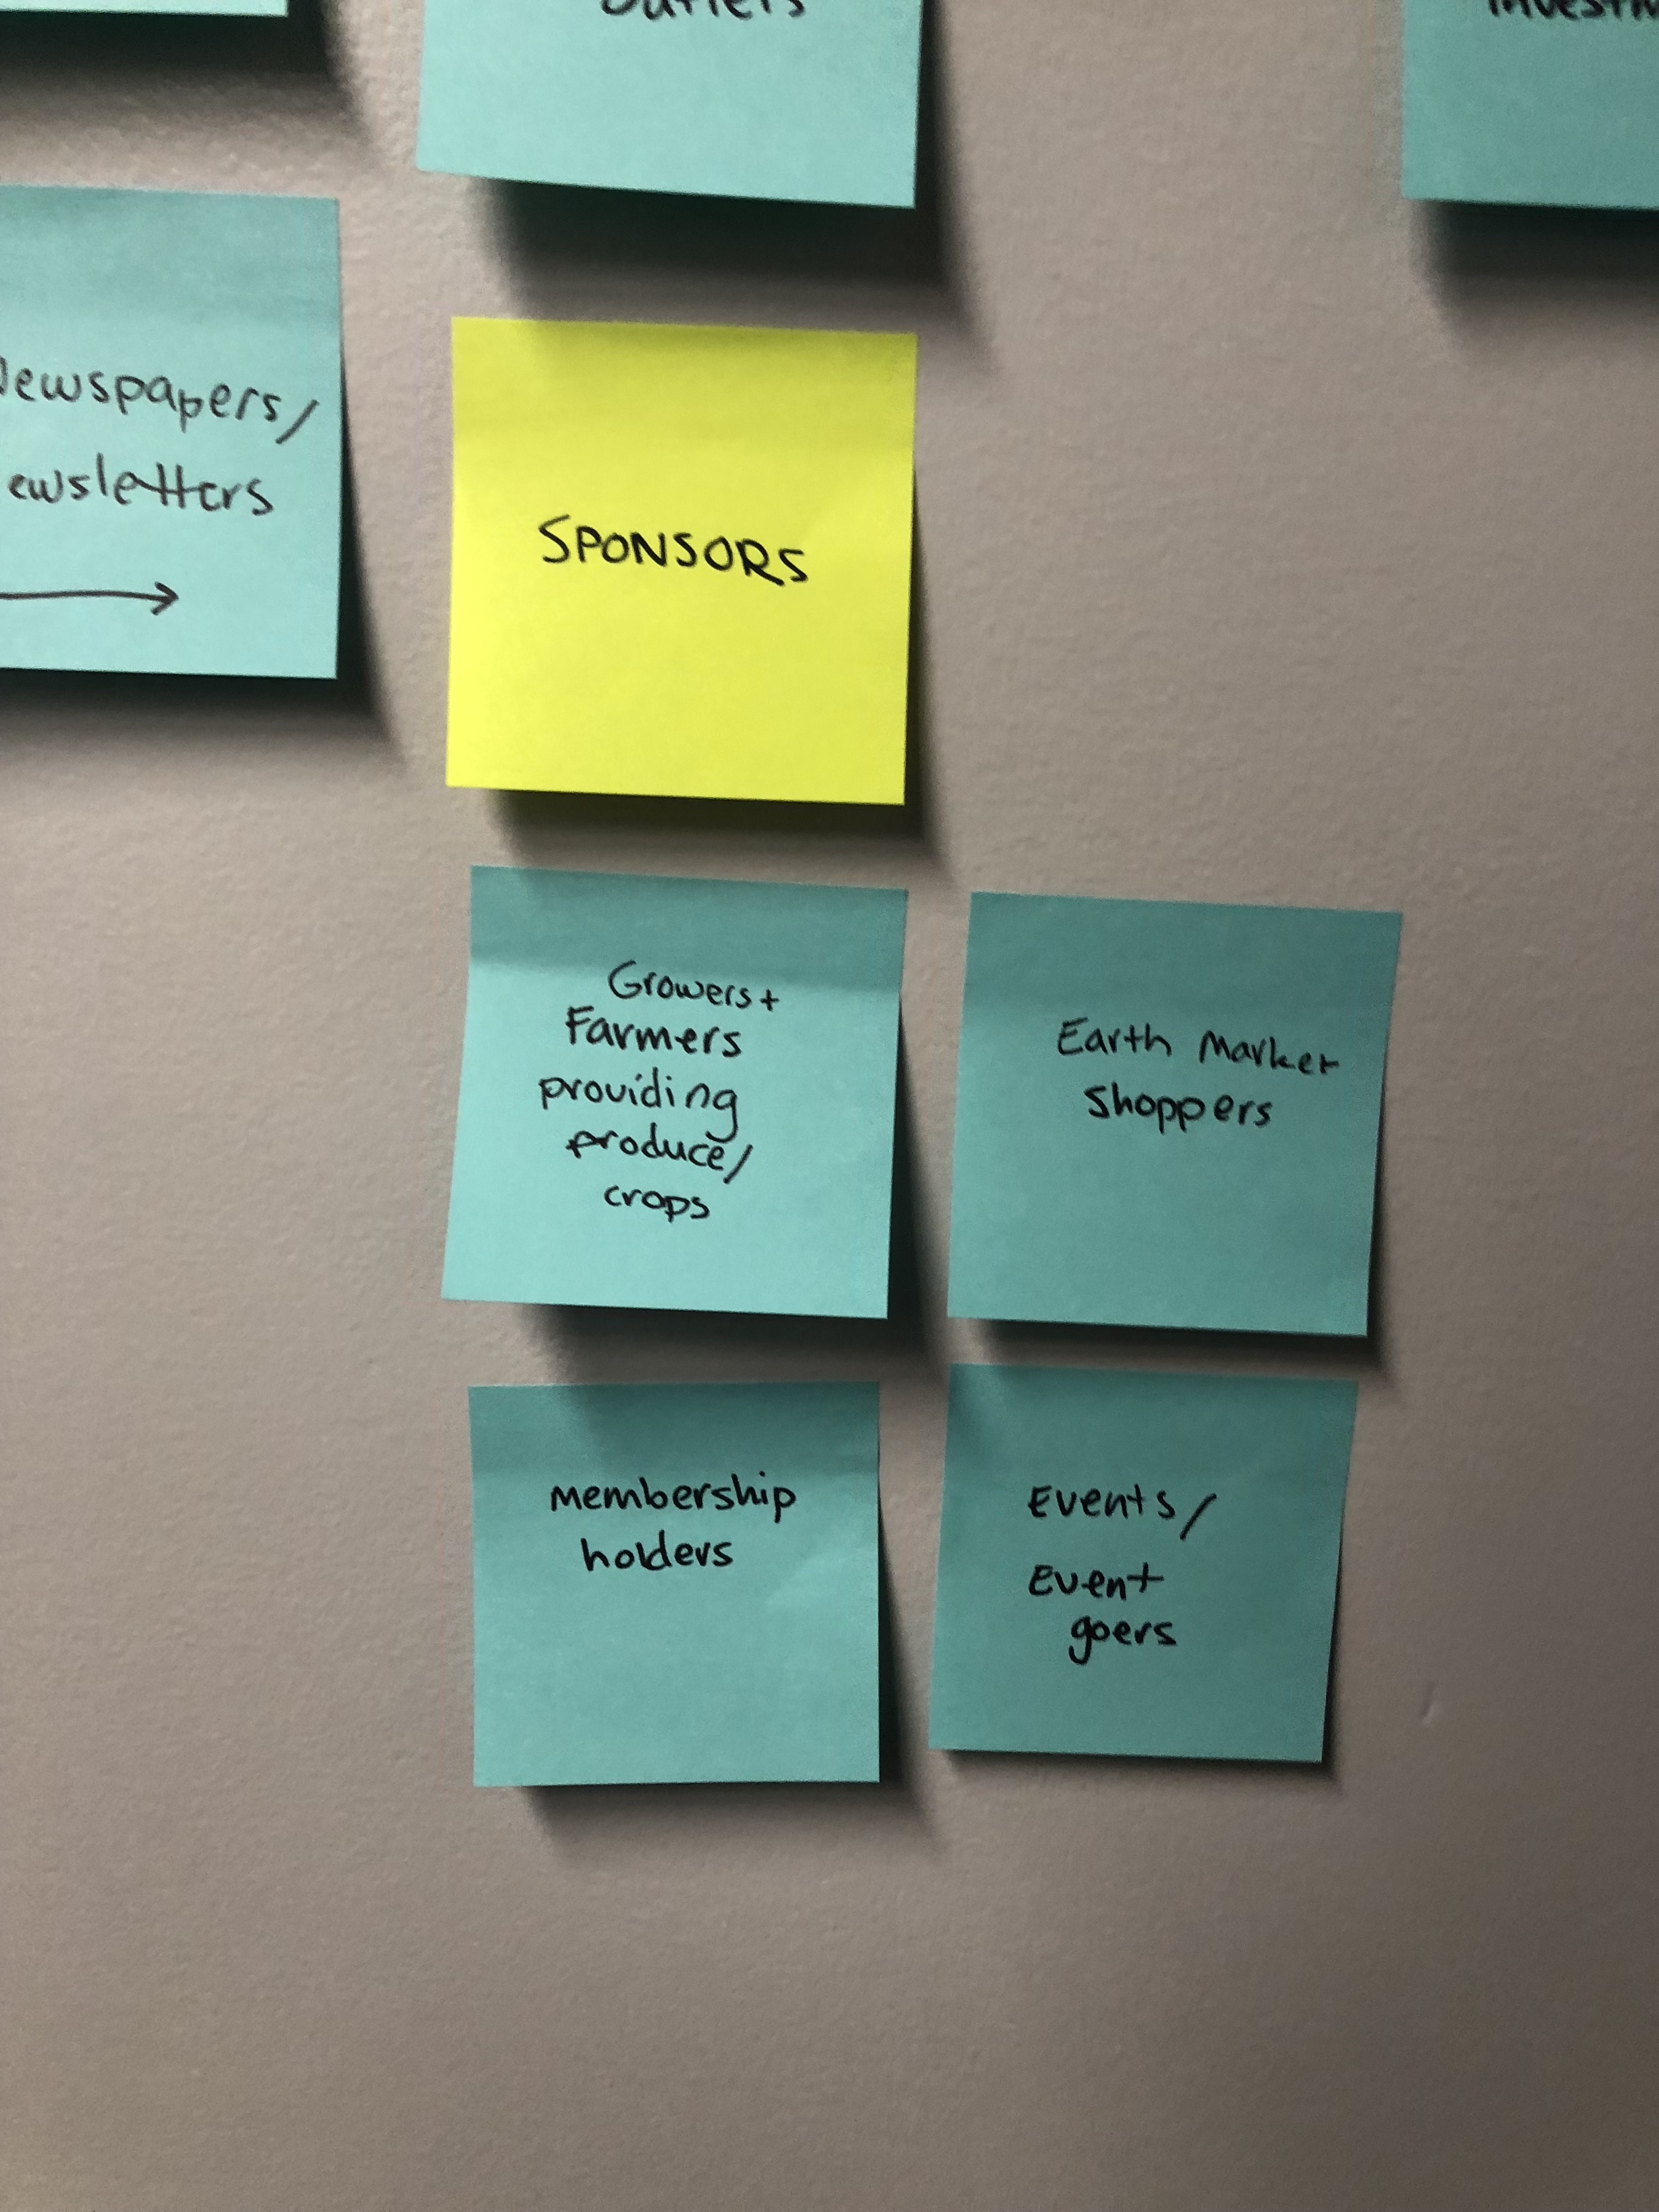 Newspapers/
ewsletters
SPONSORS
Growers+
Farmers
providing
produce/
crops
Earth Market
Shoppers
membership
holders
Events/
Event
goers